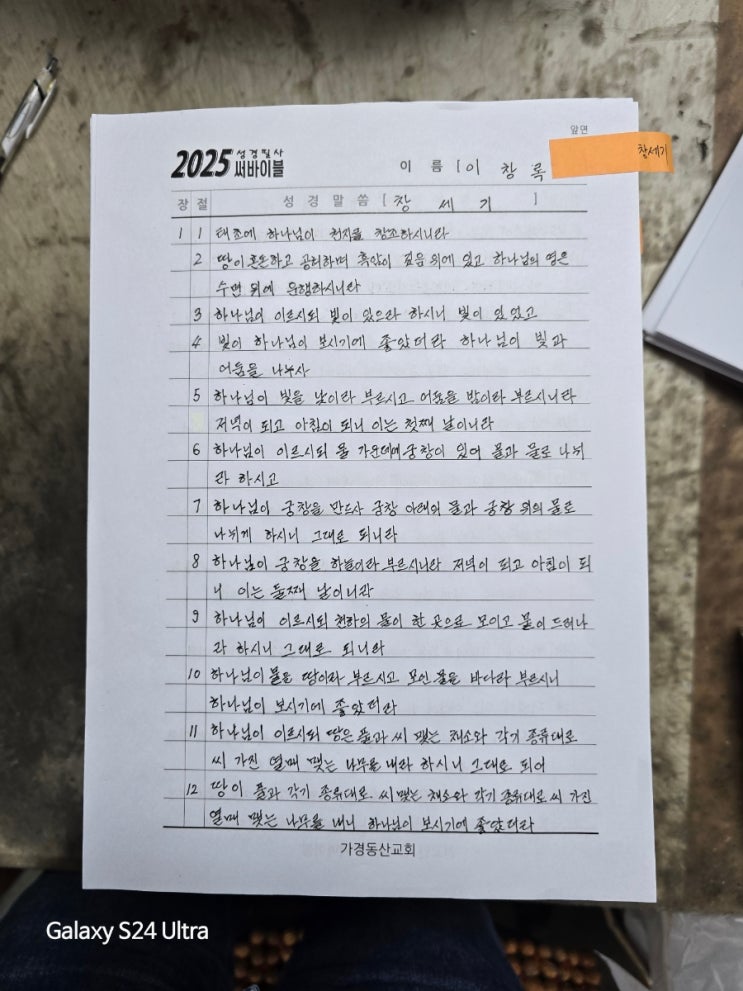 앞면
창세기
2025 성경필사 써바이블
이 름 [ 이 창 록
장 절 성 경 말 씀 [ 창 세 기 ]
1 1 태초에 하나님이 천지를 창조하시니라
2 땅이 혼돈하고 공허하며 흑암이 깊음 위에 있고 하나님의 영은
수면 위에 운행하시니라
3 하나님이 이르시되 빛이 있으라 하시니 빛이 있었고
4 빛이 하나님이 보시기에 좋았더라 하나님이 빛과
어둠을 나누사
5 하나님이 빛을 낮이라 부르시고 어둠을 밤이라 부르시니라
저녁이 되고 아침이 되니 이는 첫째 날이니라
6 하나님이 이르시되 물 가운데에 궁창이 있어 물과 물로 나뉘
라 하시고
7 하나님이 궁창을 만드사 궁창 아래의 물과 궁창 위의 물로
나뉘게 하시니 그대로 되니라
8 하나님이 궁창을 하늘이라 부르시니라 저녁이 되고 아침이 되
니 이는 둘째 날이니라
9 하나님이 이르시되 천하의 물이 한 곳으로 모이고 물이 드러나
라 하시니 그대로 되니라
10 하나님이 물을 땅이라 부르시고 모인 물을 바다라 부르시니
하나님이 보시기에 좋았더라
11 하나님이 이르시되 땅은 풀과 씨 맺는 채소와 각기 종류대로
씨 가진 열매 맺는 나무를 내라 하시니 그대로 되어
12 땅이 풀과 각기 종류대로 씨 맺는 채소와 각기 종류대로 씨 가진
열매 맺는 나무를 내니 하나님이 보시기에 좋았더라
가경동산교회
Galaxy S24 Ultra